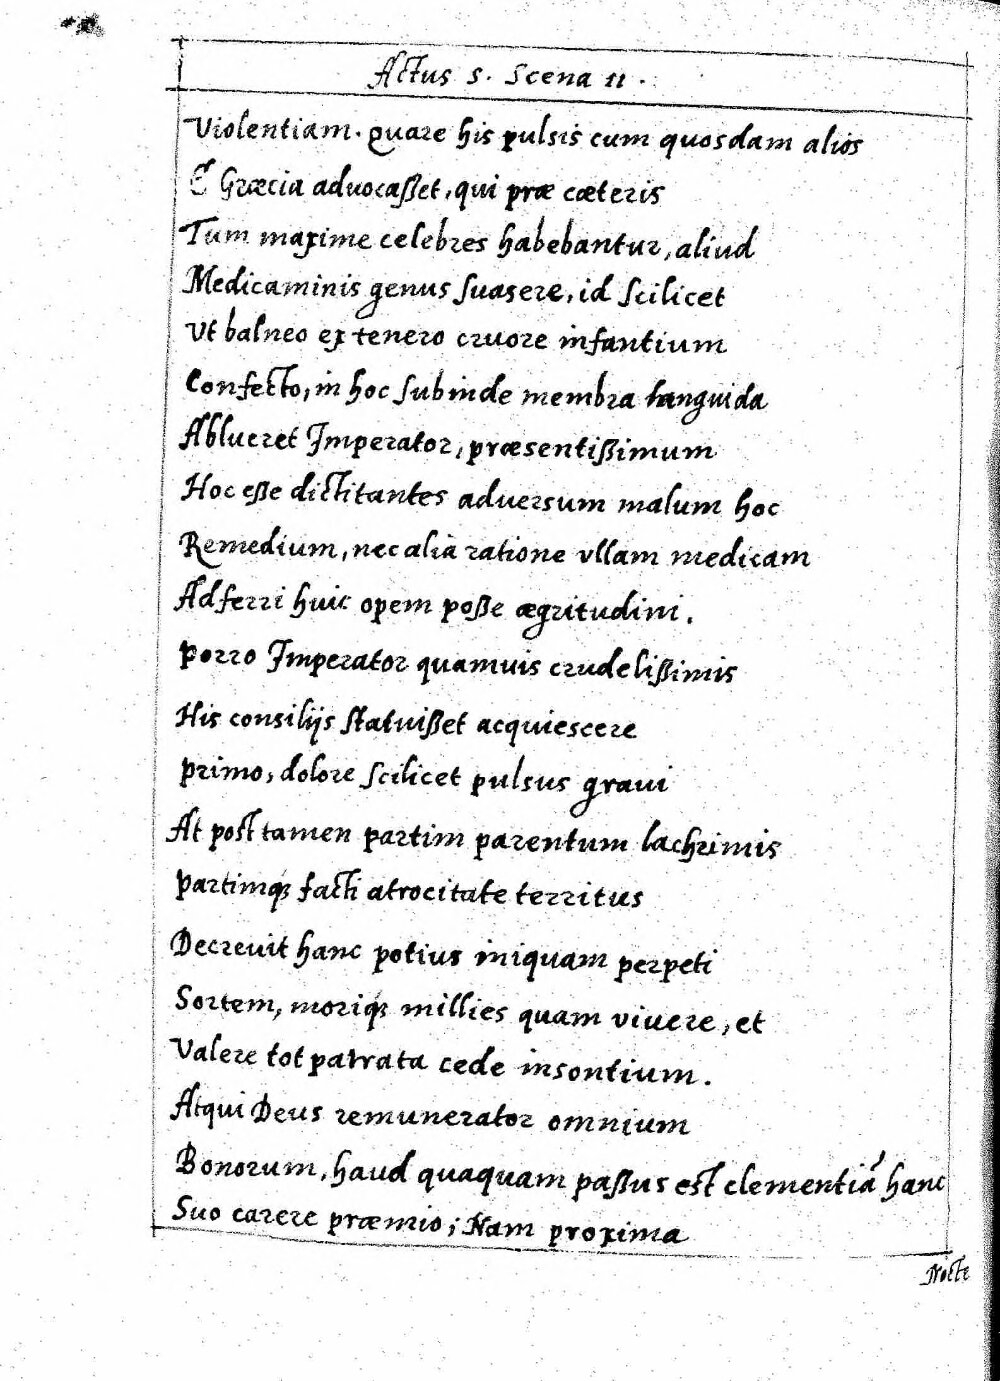 Actus 5. Scena 11.
Violentiam. Quare his pulsis cum quosdam alios
E Græcia aduocaßet, qui præ cæteris
Tum maxime celebres habebantur, aliud
Medicaminis genus suasere, id scilicet
Vt balneo ex tenero cruore infantium
Confecto, in hoc subinde membra languida
Ablueret Imperator, præsentißimum
Hoc eße dictitantes aduersum malum hoc
Remedium, nec alia ratione vllam medicam
Adferri huic opem poße ægritudini.
Porro Imperator quamuis crudelißimis
His consilijs statuißet acquiescere
Primo, dolore scilicet pulsus graui
At post tamen partim parentum lachrimis
Partimq; facti atrocitate territus
Decreuit hanc potius iniquam perpeti
Sortem, moriq; millies quam viuere, et
Valere tot patrata cede insontium.
Atqui Deus remunerator omnium
Bonorum, haud quaquam paßus est clementiā hanc
Suo carere præmio; Nam proxima
Nocte